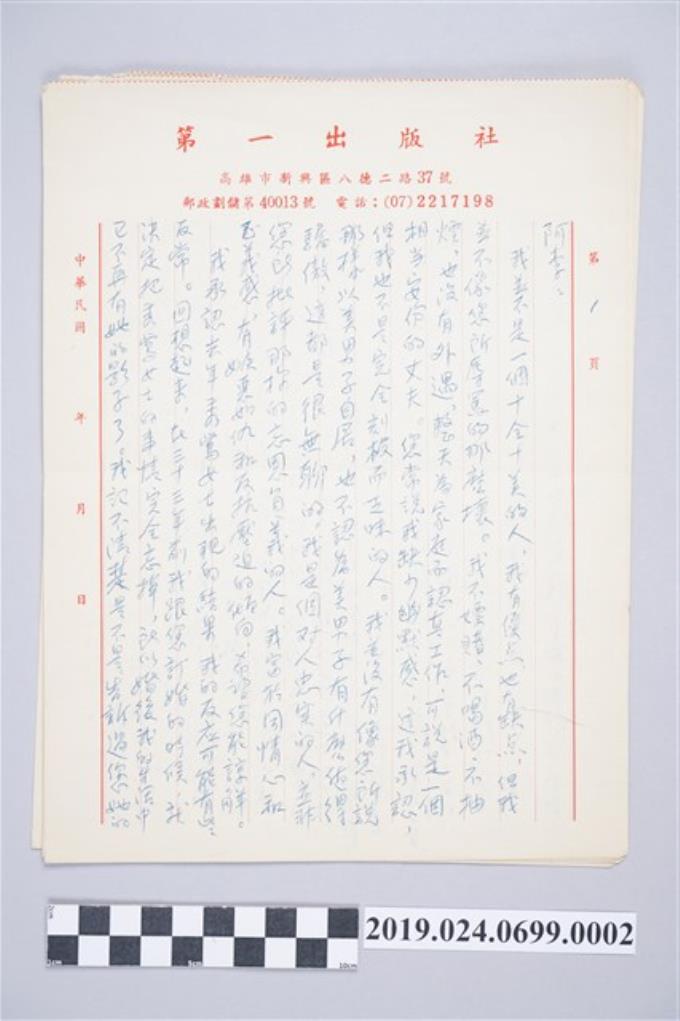 第一出版社
高雄市新興區八德二路37號
郵政劃儲第40013號 電話：(07)2217198
第 1 頁
阿李：
我並不是一個十全十美的人，我有優点也有缺点，但我
並不像您所厚惡的那麼壞。我不嫖賭、不喝酒、不抽
煙，也沒有外遇，整天為家庭而認真工作，可說是一個
相當安份的丈夫。您常說我缺少幽默感，這我承認，
但我也不是完全刻板而乏味的人。我並沒有像您所說
那樣以美男子自居，也不認為美男子有什麼值得
驕傲，這都是很無聊的。我是個对人忠实的人，並非
您所批評那样的忘恩負義的人。我富於同情心和
正義感，有嫉惡如仇和反抗壓迫的傾向，希望您能諒解。
我承認去年素鶯女士出現的結果，我的反应可能有点
反常。回想起來，在三十三年前我跟您訂婚的時候，就
決定把素鶯女士的事情完全忘掉，所以婚後我的生活中
已不再有她的影子了。我記不清楚是不是告訴過您她的
中華民國 年 月 日
2cm
1cm
5cm
10cm
2019.024.0699.0002